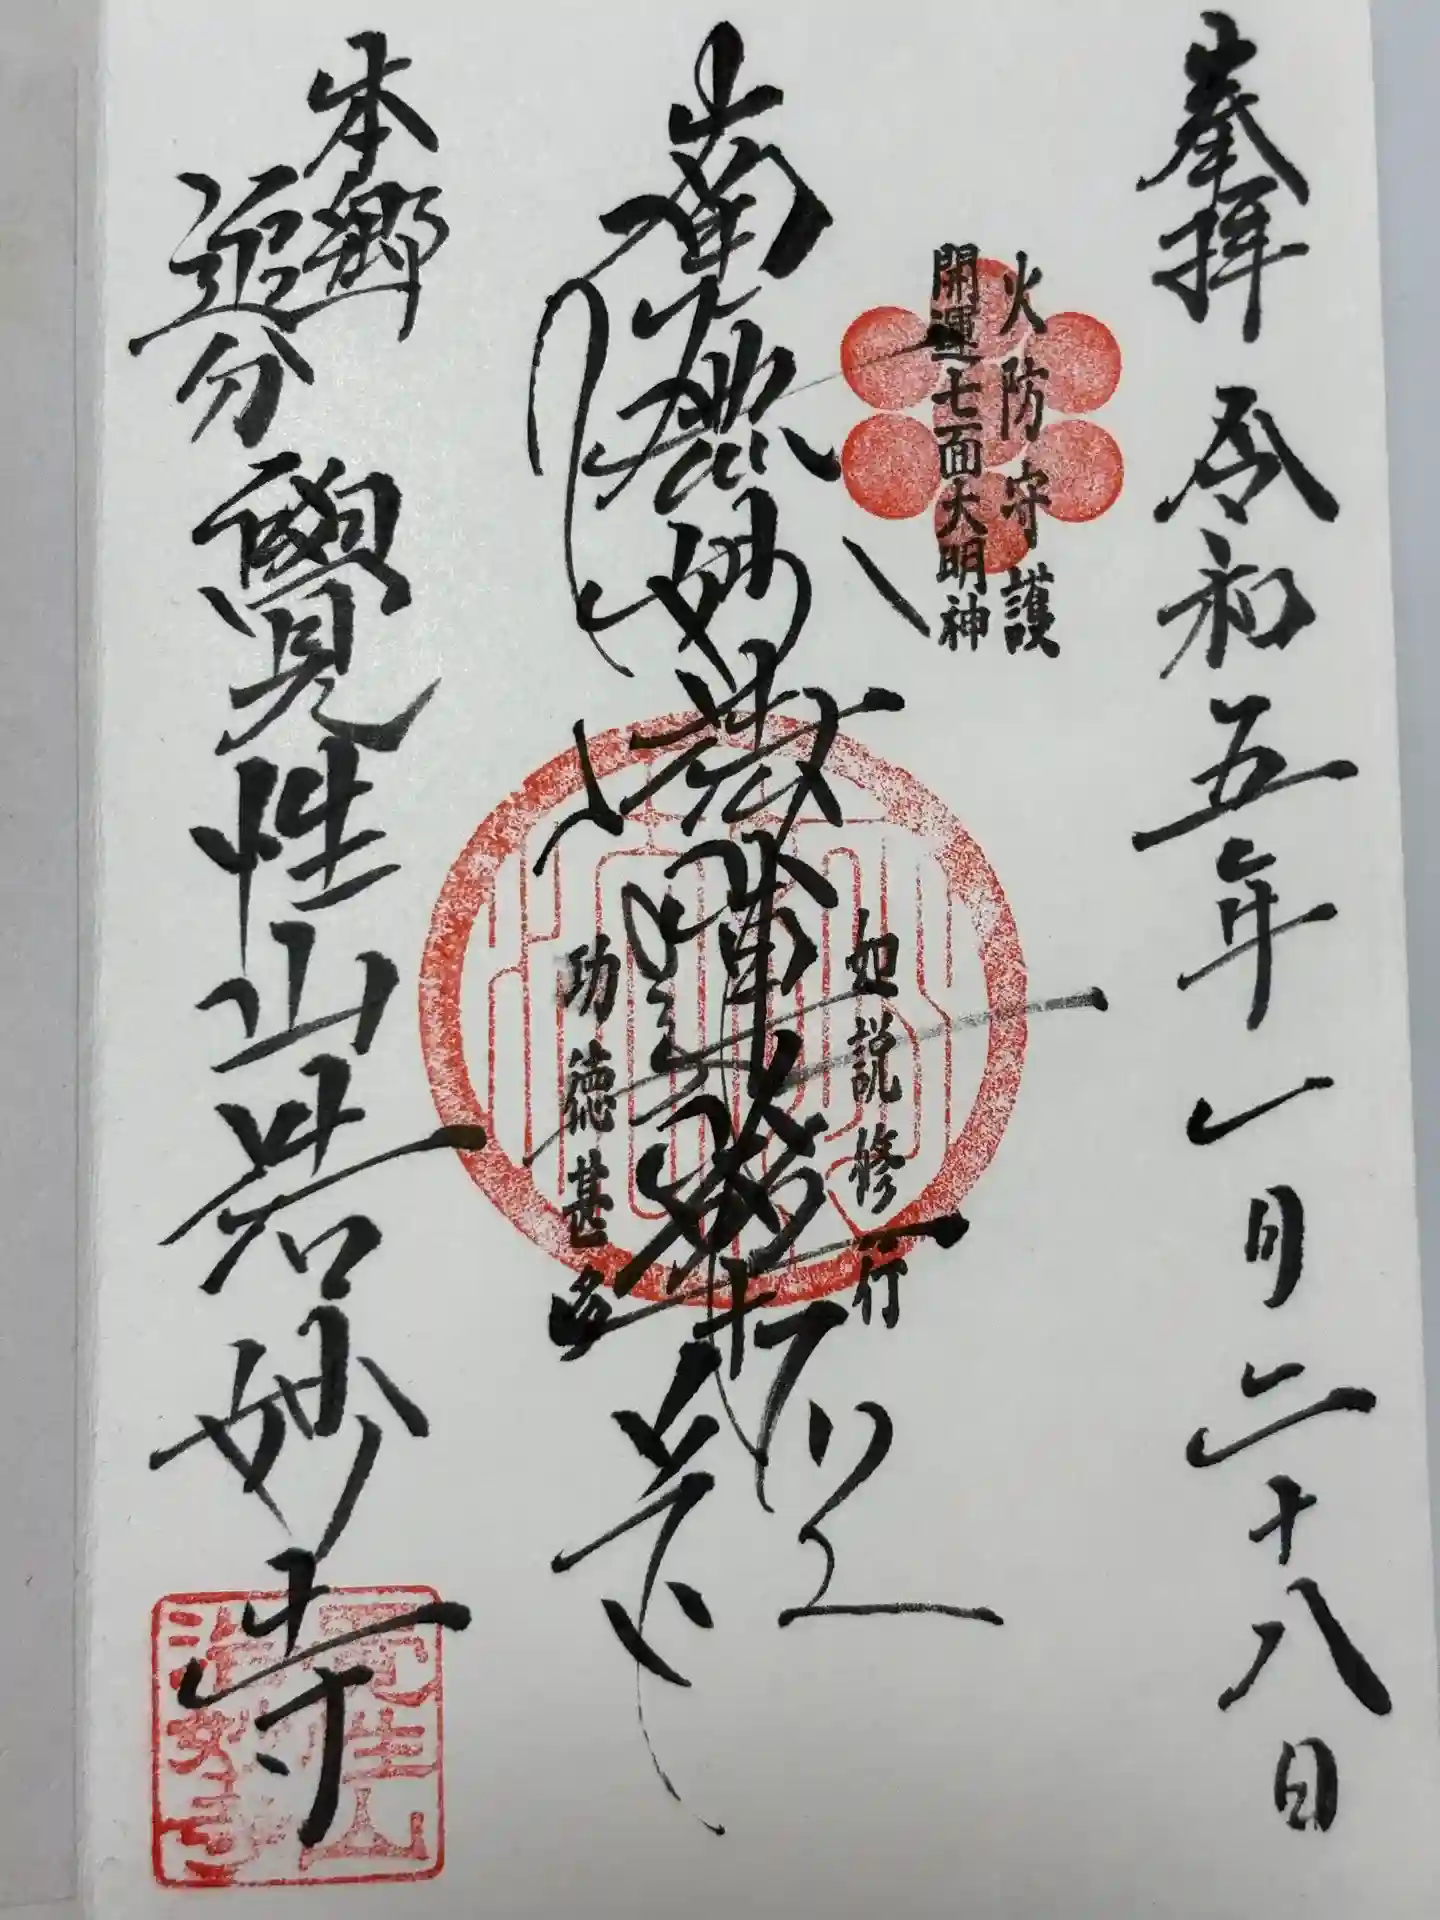 奉拝 令和五年一月二十八日
火防守護
開運七面大明神
南無妙法蓮華経
如説修行
功徳甚多
本郷
追分
覺性山浩妙寺